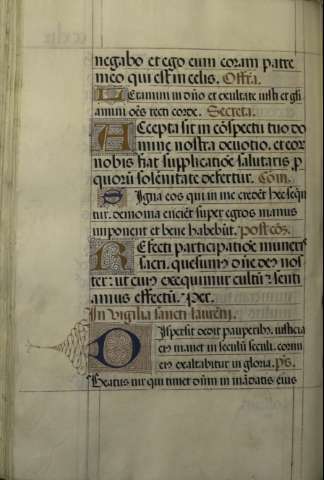 negabo et ego eum coram patre
meo qui est in celis. Offra.
Letamini in dño et exultate iusti et gl̃i
amini oẽs recti corde. Secreta.
Accepta sit in cõspectu tuo do
mine nostra deuotio. et eor
nobis fiat supplicatiõe salutaris p̱
quorũ solẽnitate defertur. Com.
Signa eos qui in me credẽt hec sequ
tur. demonia eiciẽt super egros manus
imponent et bene habebũt. postcõ.
Refecti participatiõe muneris
sacri. quesum9 dñe de9 nos
ter: ut cui9 exequimur cultũ: senti
amus effectũ. Per.
In vigilia sancti laurẽtii.
Dispersit dedit pauperib9. iusticia
ei9 manet in seculũ seculi. cornu
ei9 exaltabitur in gloria. p̃s.
Beatus uir qui timet dñm in mãdatis eius